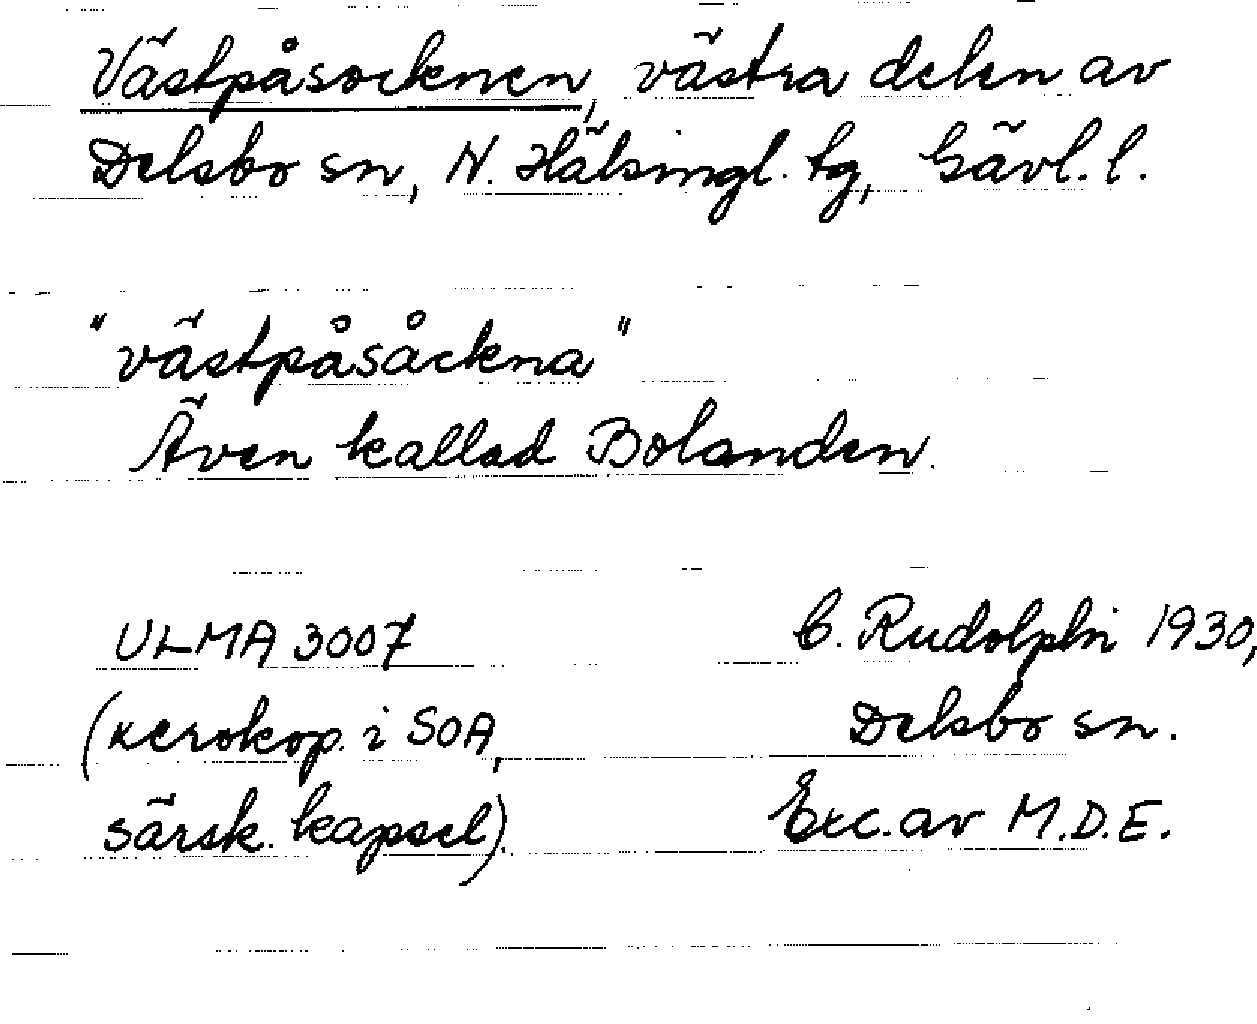 Västpåsockenen, västra delen av
Delsbo sn, N. Hälsingl. tg, Gävl. l.
"västpåsåckna"
Även kallad Bolanden.
ULMA 3007
C. Rudolphi 1930,
(xerokop. i SOA,
Delsbo sn.
särsk. kapsel).
Exc. av M.D.E.